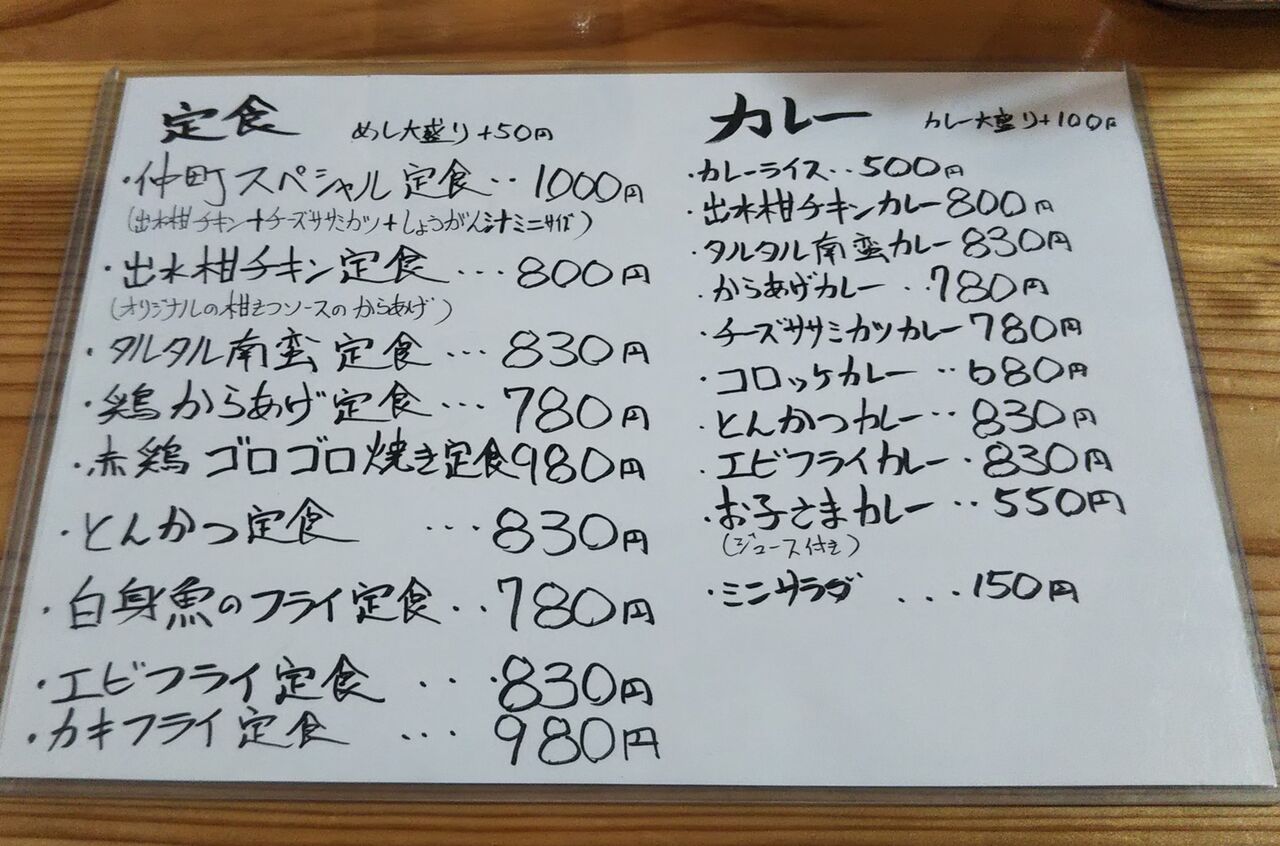 定食 めし大盛り+50円
・仲町スペシャル定食‥1000円
(出水柑チキン+チーズササミカツ+しょうがん汁ミニサイズ)
・出水柑チキン定食…800円
(オリジナルの柑きつソースのからあげ)
・タルタル南蛮定食…830円
・鶏からあげ定食…780円
・赤鶏ゴロゴロ焼き定食980円
・とんかつ定食…830円
・白身魚のフライ定食‥780円
・エビフライ定食…830円
・カキフライ定食…980円
カレー カレー大盛り+100円
・カレーライス‥500円
・出水柑チキンカレー800円
・タルタル南蛮カレー830円
・からあげカレー‥780円
・チーズササミカツカレー780円
・コロッケカレー‥680円
・とんかつカレー‥830円
・エビフライカレー・830円
・お子さまカレー‥550円
(ジュース付き)
・ミニサラダ…150円